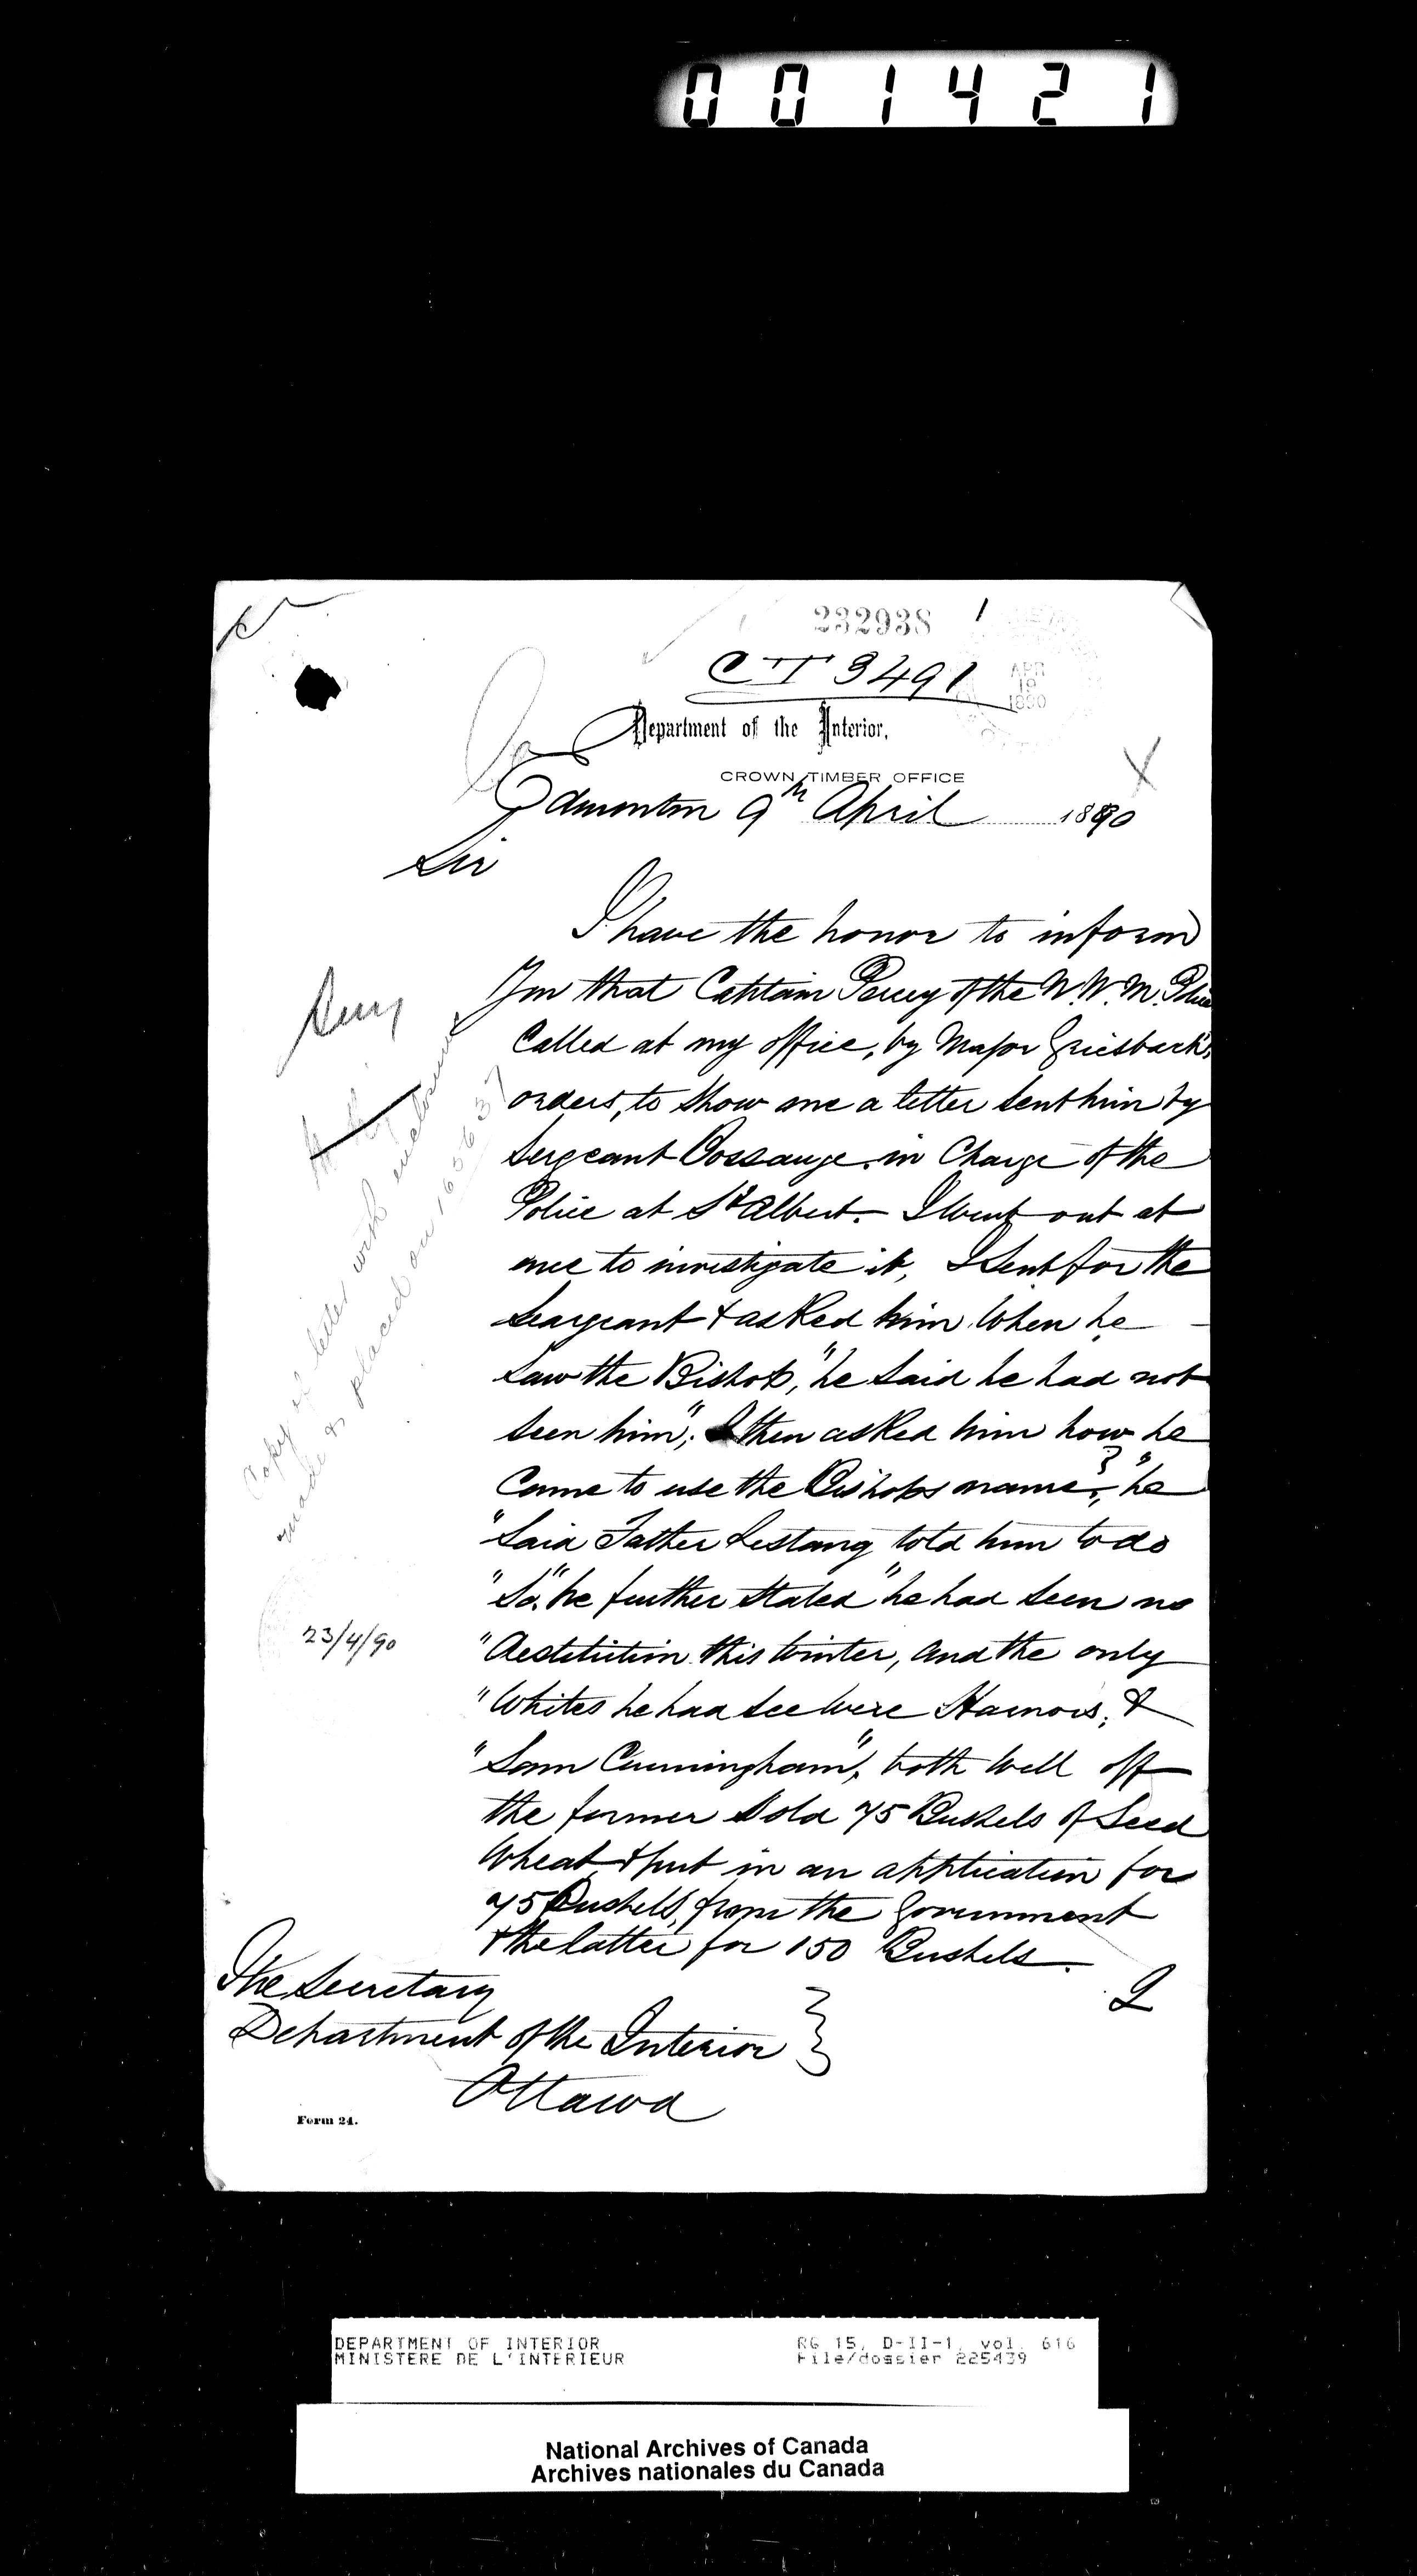 001421
232938 1
CT 3491
APR
19
1890
Department of the Interior,
CROWN TIMBER OFFICE
Edmonton 9th April 1890
Sir
I have the honor to inform
You that Captain Percy of the N. W. M. Police
Called at my office, by Major Griesbach's
orders, to show me a letter sent him by
Sergeant Dossauge in Charge of the
Police at St Albert. I went out at
once to investigate it, I sent for the
Seargeant & asked him when he
saw the Bishop, "he said he had not
seen him"; I then asked him how he
Came to use the Bishops name?, "he
"Said Father Lestang told him to do
"So." he further stated "he had seen no
"Destitution this winter, and the only
"Whites he had see were Harnois, &
"Sam Cunningham", both well off
the former sold 75 Bushels of Seed
Wheat & put in an application for
75 Bushels, from the Government
& the latter for 150 Bushels.
2
The Secretary
Department of the Interior }
Ottawa
Form 24.
Copy of letter with enclosure
made & placed on
23/4/90
DEPARTMENT OF INTERIOR
MINISTERE DE L'INTERIEUR
RG 15, D-II-1, vol. 616
File/dossier 225439
National Archives of Canada
Archives nationales du Canada